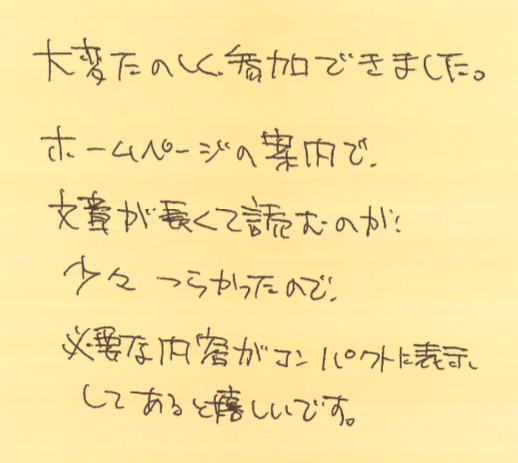 大変たのしく参加できました。
ホームページの案内で、
文章が長くて読むのが、
少々つらかったので、
必要な内容がコンパクトに表示、
してあると嬉しいです。